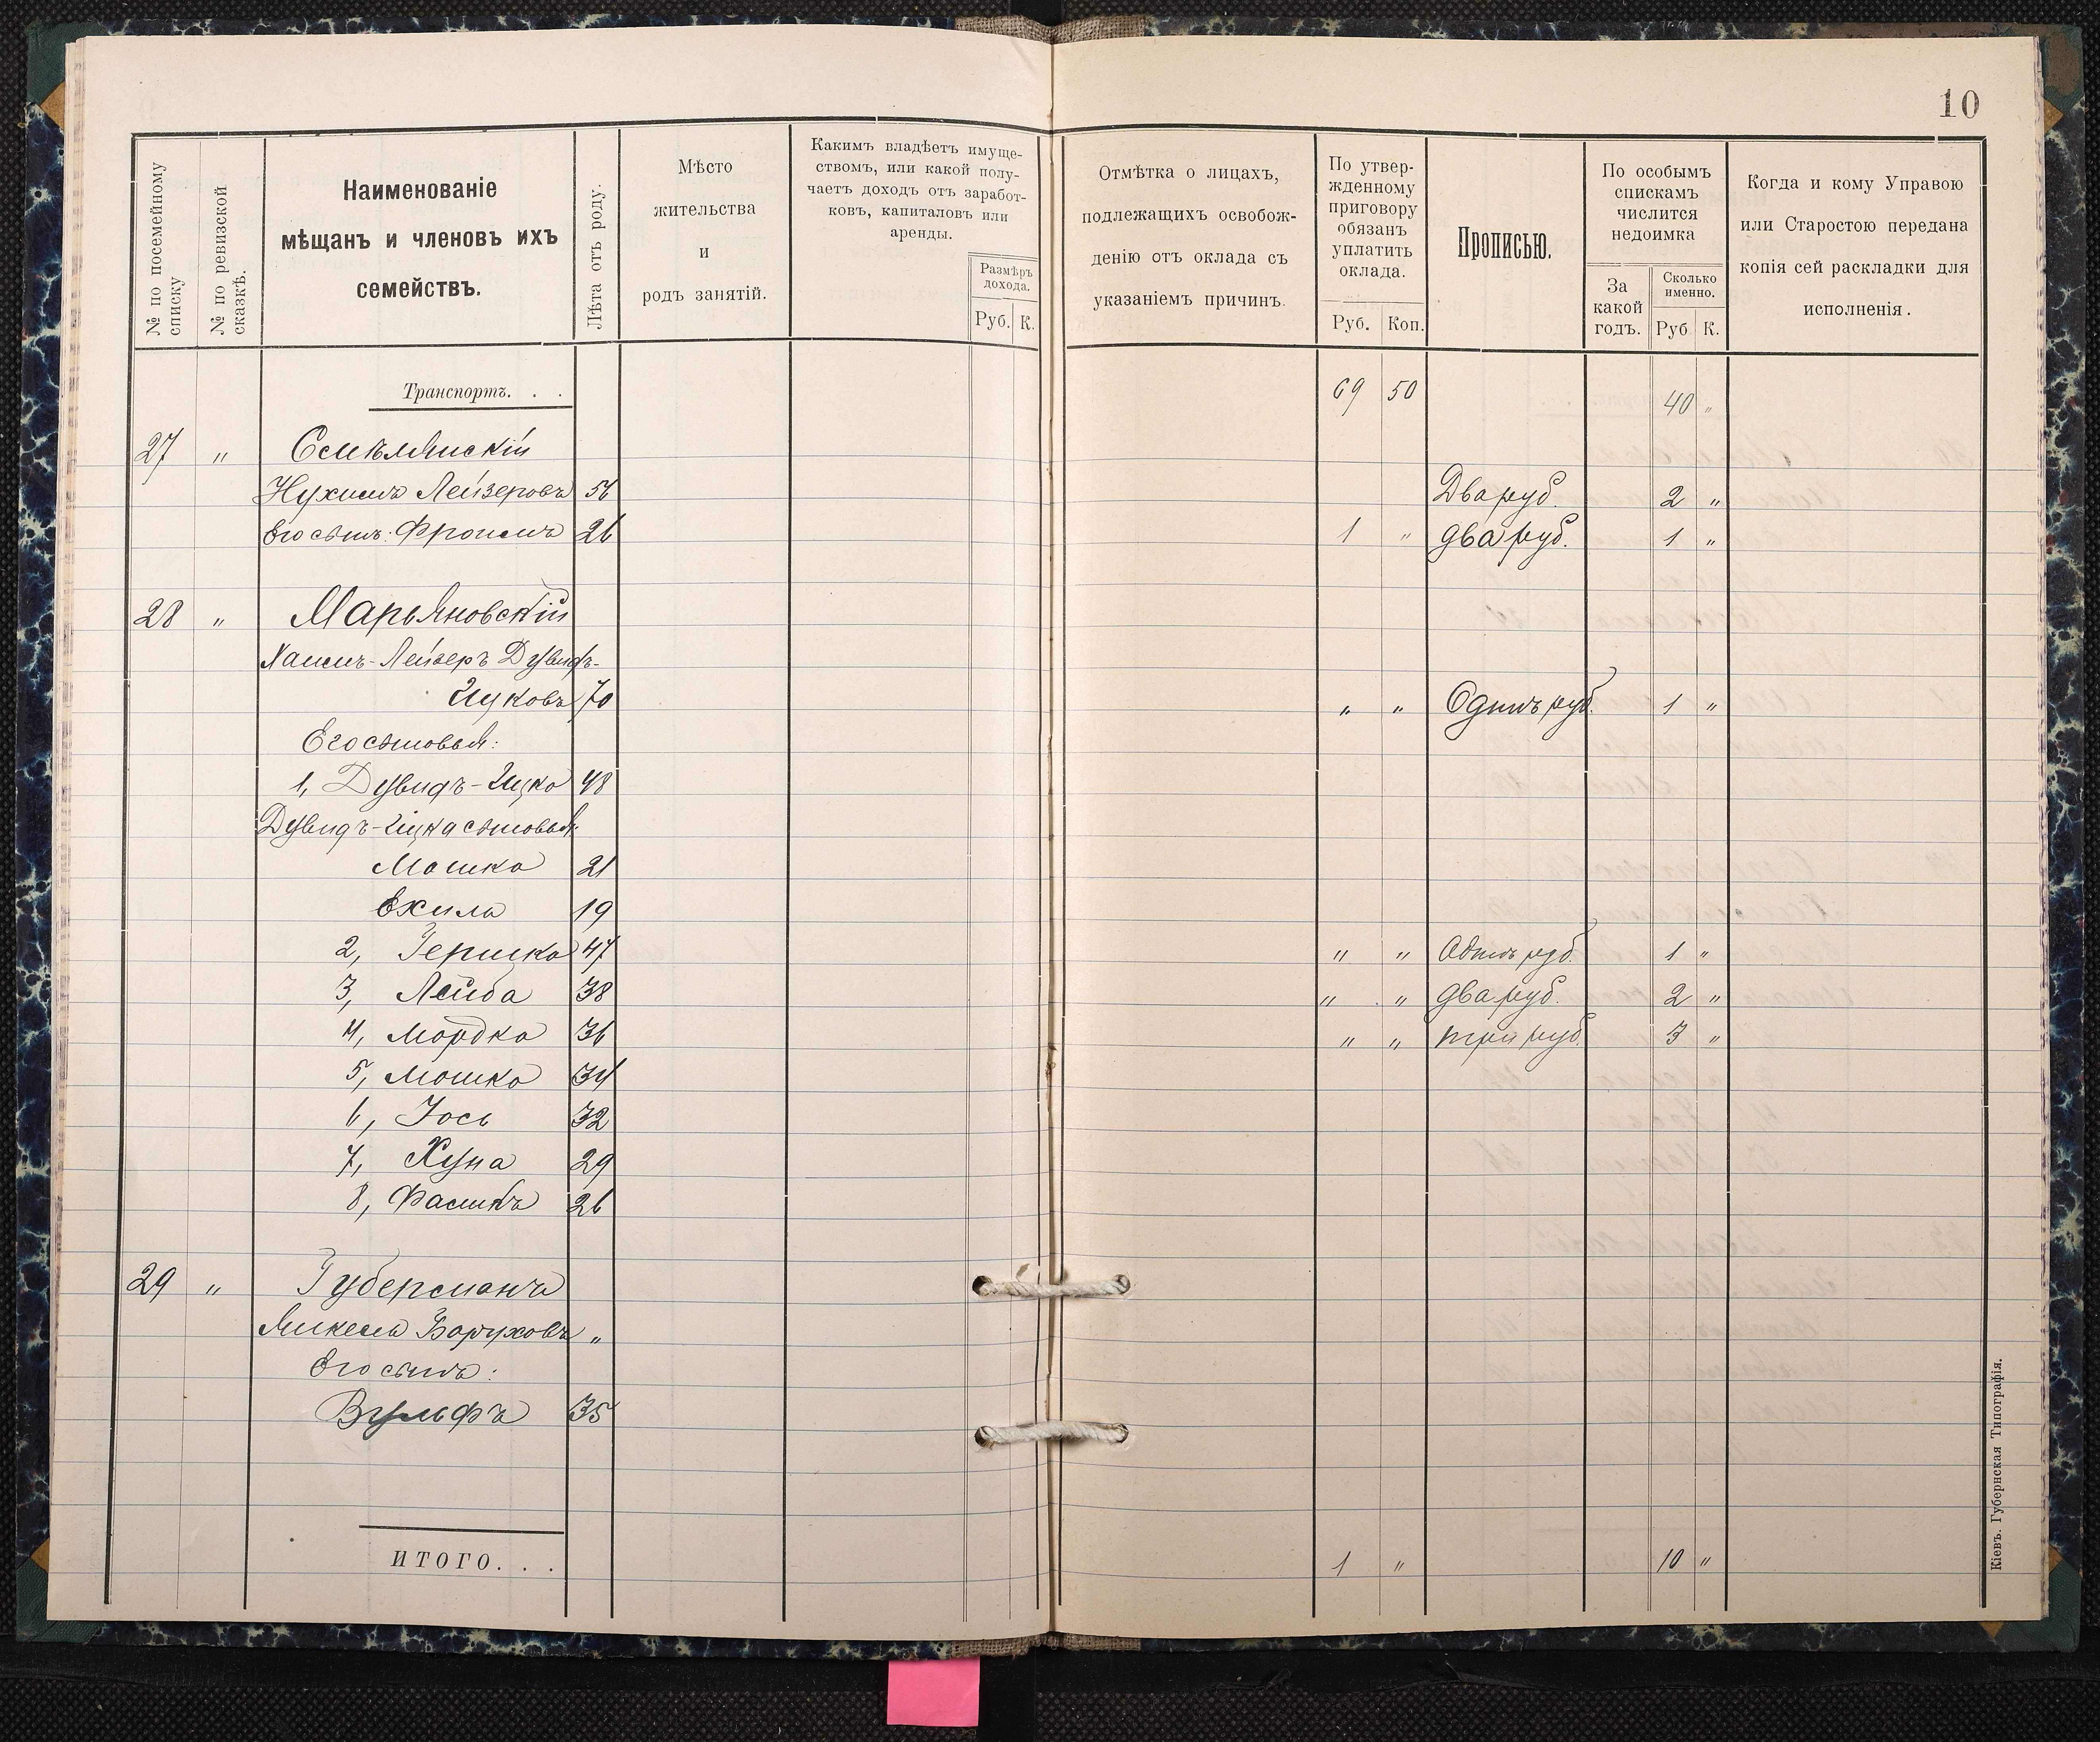 10
№ по посемейному списку
№ по ревизской сказкѣ.
Наименованіе
мѣщанъ и членовъ ихъ
семействъ.
Лѣта отъ роду.
Мѣсто
жительства
и
родъ занятій.
Какимъ владѣетъ имуще-
ствомъ, или какой полу-
чаетъ доходъ отъ заработ-
ковъ, капиталовъ или
аренды.
Размѣръ
дохода.
Руб. К.
Отмѣтка о лицахъ,
подлежащихъ освобож-
денію отъ оклада съ
указаніемъ причинъ.
По утвер-
жденному
приговору
обязанъ
уплатить
оклада.
Руб. Коп.
Прописью.
По особымъ
спискамъ
числится
недоимка
За
какой
годъ.
Сколько
именно.
Руб К.
Когда и кому Управою
или Старостою передана
копія сей раскладки для
исполненія.
Транспортъ. . . 69 50 40 "
27 " Смѣлянскій
Нухимъ Лейзеровъ 56 Два руб. 2 "
Его сынъ: Фроимъ 26 1 " два руб. 1 "
28 " Марьяновскій
Хаимъ-Лейзеръ Дувидъ-
Ицковъ 70 " " Одинъ руб. 1 "
Его сыновья:
1, Дувидъ-Ицко 48
Дувидъ-Ицка сыновья:
Мошко 21
Ехила 19
2, Гершко 47 " " Одинъ руб. 1 "
3, Лейба 38 " " два руб. 2 "
4, Мордко 36 " " три руб. 3 "
5, Мошко 34
6, Іось 32
7, Хуна 29
8, 26
29 " Губерманъ
Янкель Боруховъ "
Его сынъ:
Вульфъ 35
ИТОГО. . . 1 " 10 "
Кіевъ. Губернская Типографія.